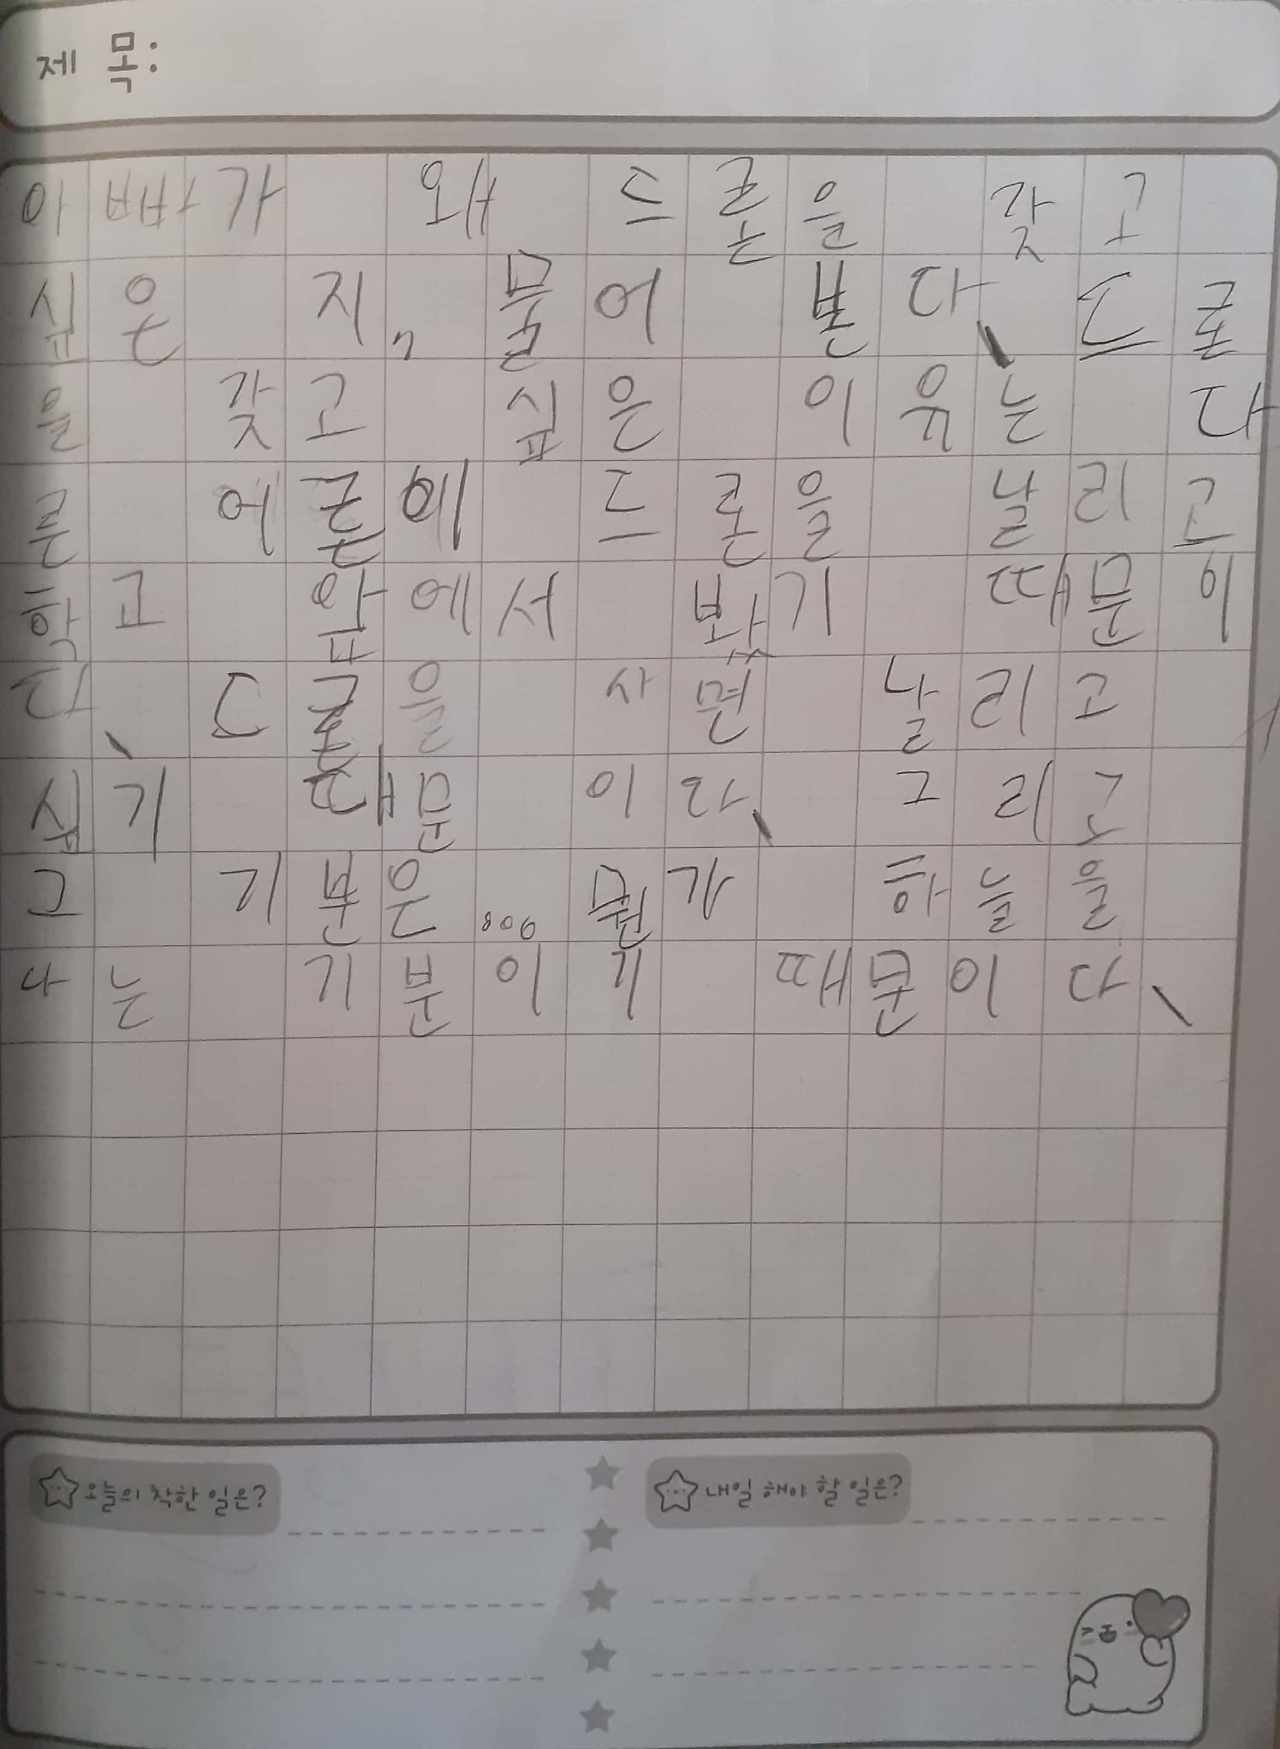 제 목:
아빠가 왜 드론을 갖고
싶은 지, 물어 본다. 드론
을 갖고 싶은 이유는 다
른 에른에 드론을 날리고
학고 앞에서 봤기 때문이
다. 드론을 사면 날리고
싶기 때문 이다. 그리고
그 기분은... 뭔가 하늘을
나는 기분이기 때문이다.
오늘의 착한 일은?
내일 해야 할 일은?